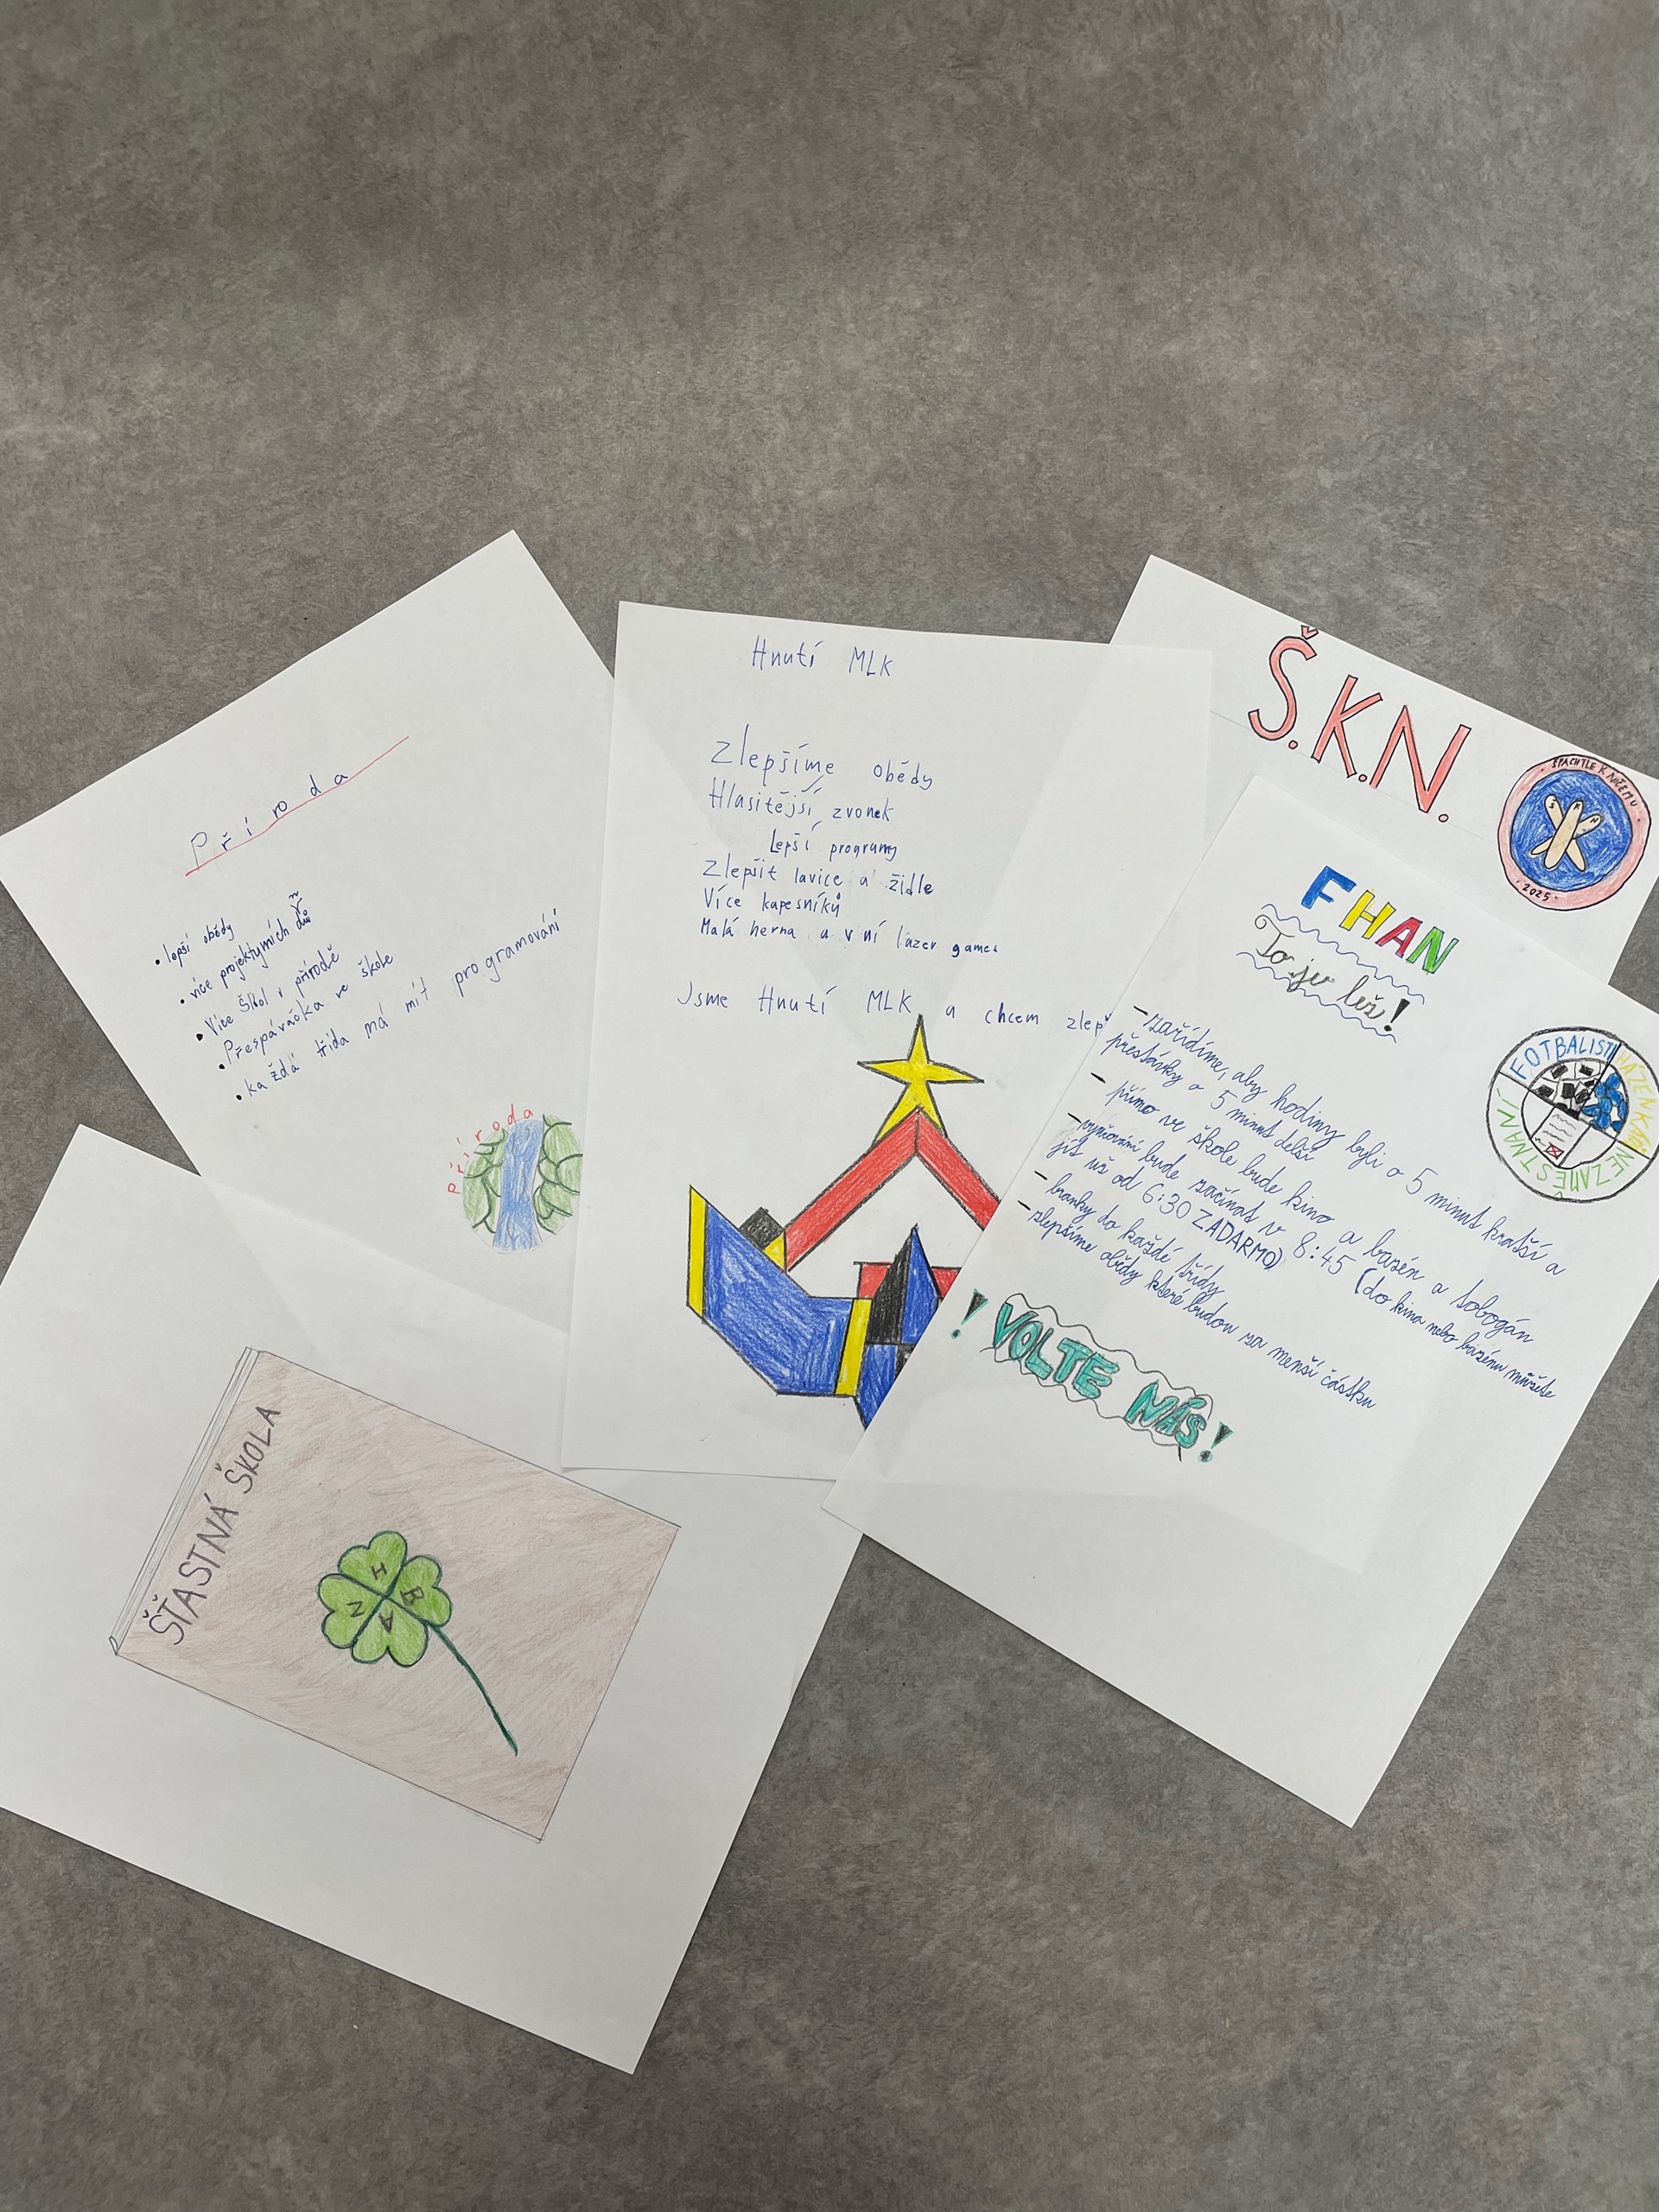 Příroda
• lepší obědy
• více projektyních dnů
• Více Škol v přírodě
• Přespávačka ve škole
• každá třída má mít programování
Příroda
Hnutí MLK
Zlepšíme obědy
Hlasitější zvonek
Lepší programy
Zlepšit lavice a židle
Více kapesníků
Malá herna a v ní lazer games
Jsme Hnutí MLK a chcem zlepš
Š.K.N.
ŠPACHTLE K NIČEMU
Š K N
• 2025 •
FHAN
To je lež!
- zařídíme, aby hodiny byli o 5 minut kratší a
přestávky o 5 minut delší
- přímo ve škole bude kino a bazén a tobogán
- vyučování bude začínat v 8:45 (do kina nebo bazénu můžete
jít už od 6:30 ZADARMO)
- branky do každé třídy
- zlepšíme obědy které budou za menší částku
! VOLTE NÁS!
FOTBALISTI
HÁZENKÁŘI
NEZAMĚSTNANÍ
ŠŤASTNÁ ŠKOLA
H
B
A
N